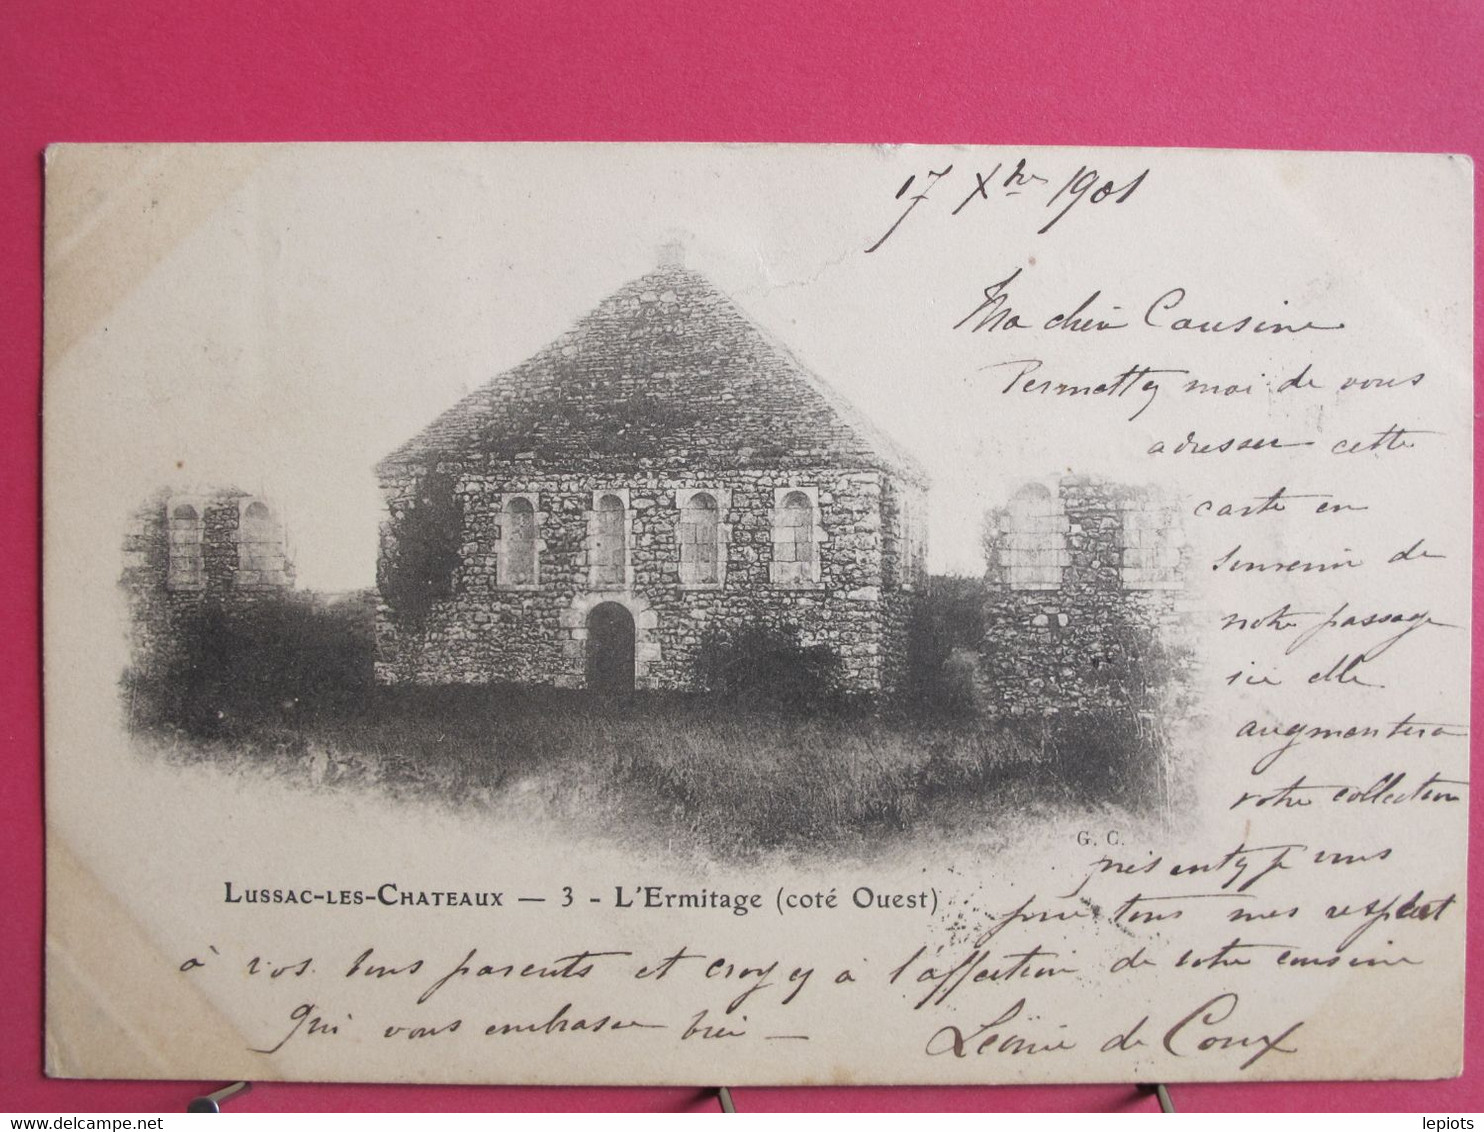 17 Xbre 1901
Ma chère Cousine
Permettez moi de vous
adresser cette
carte en
souvenir de
notre passage
ici elle
augmentera
votre collection
G. C.
présentez je vous
prie tous mes respect
LUSSAC-LES-CHATEAUX — 3 - L'Ermitage (coté Ouest)
à vos bons parents et croyez à l'affection de votre cousine
qui vous embrasse bien —
Léonie de Coux
lepiots